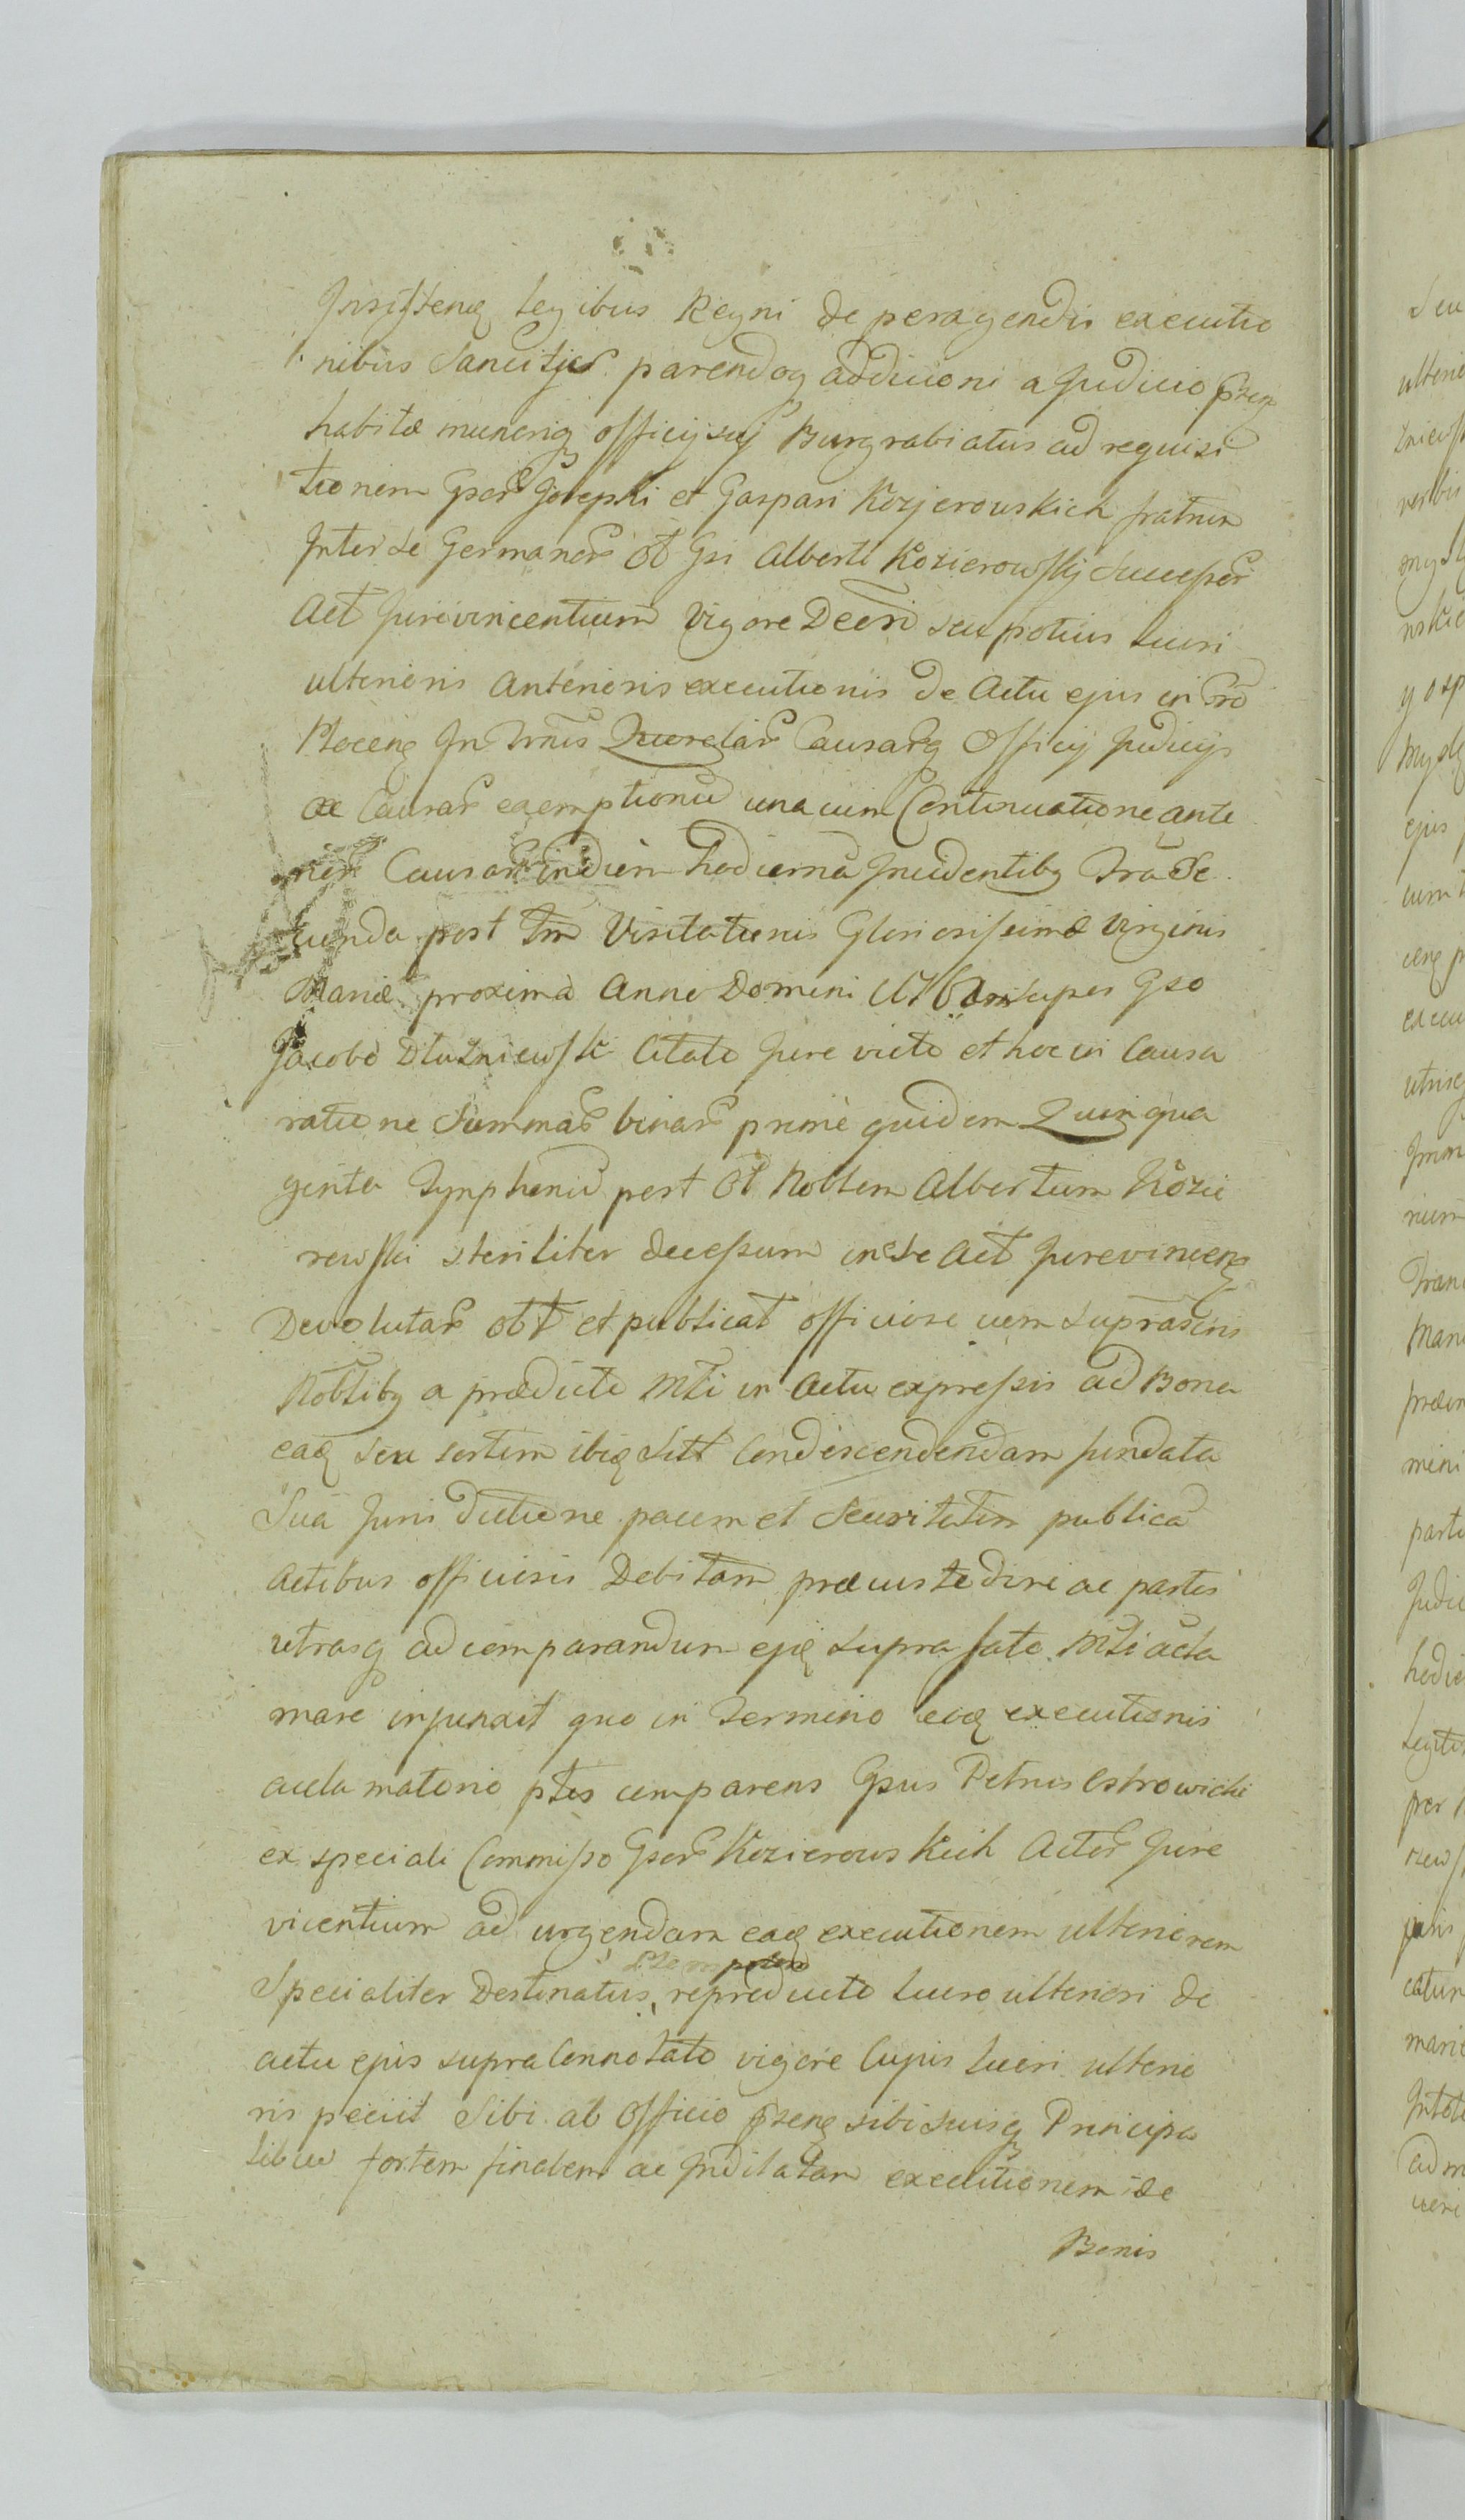 Insistenꝗ legibus Regni de peragendis executio
nibus Sancitjs parendoq addicioni a Judicio
habitæ munerisq officij sui Burgrabiatus ad requisi
tionem Gsor Josephi et Gaspari Kozjerowskich fratrum
Inter se Germanor ol Gsi Alberti Kozierowskij Successor
Act Jurevincentium vigore Decri seu potius Lucri
ulterioris anterioris executionis de Actu ejus in
Plocenꝗ In Trnis Querelar Causarq Officij Judicijs
ac Causar exemptionu una cum Continuatione ante
rior Causar in diem hodierna Incidentibq Fra Se
cunda post Fm Visitationis Gloriosissimæ Virginis
Mariæ proxima Anno Domini super Gso
Jacobo Dłuzniewski Citato Jure victo et hoc in Causa
ratione Summar binar prime quidem Quinqua
ginta Tympheniu post ol Nobilem Albertum Kozie
rowski steriliter decessum in se Act Jurevincenꝗ
Devolutar obt et publicat officiose cum suprascris
Nobtibq a prædicto Mti in Actu expressis ad Bona
eaꝗ seu sortem ibiꝗ Sitt Condescendendam fundata
Sua Jurisdictione pacem et Securitatem publica
Actibus officiosis Debitam præcustodire ac partes
utrasq ad comparandum ejꝗ supra fato Mti acla
mare injunxit quo in Termino eoꝗ executionis
acclamatorio ptes comparens Gsus Petrus Ostrowicki
ex speciali Commisso Gsor Kozierowskich Actor Jure
vicentium ad urgendam eaꝗ executionem ulteriorem
Specialiter Destinatus, reproducto Lucro ulteriori de
actu ejus supra Connotato vigore Cujus Lucri ulterio
ris peciit Sibi ab Officio sibi suisq Principa
libus fortem finalem ac Indilatam executionem de
Bonis